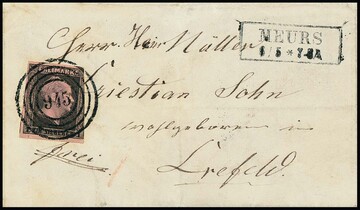 MEURS
1/5 * 7-8A
Herrn Hein Müller
Christian Sohn
945
wohlgeboren in
frei
Crefeld.